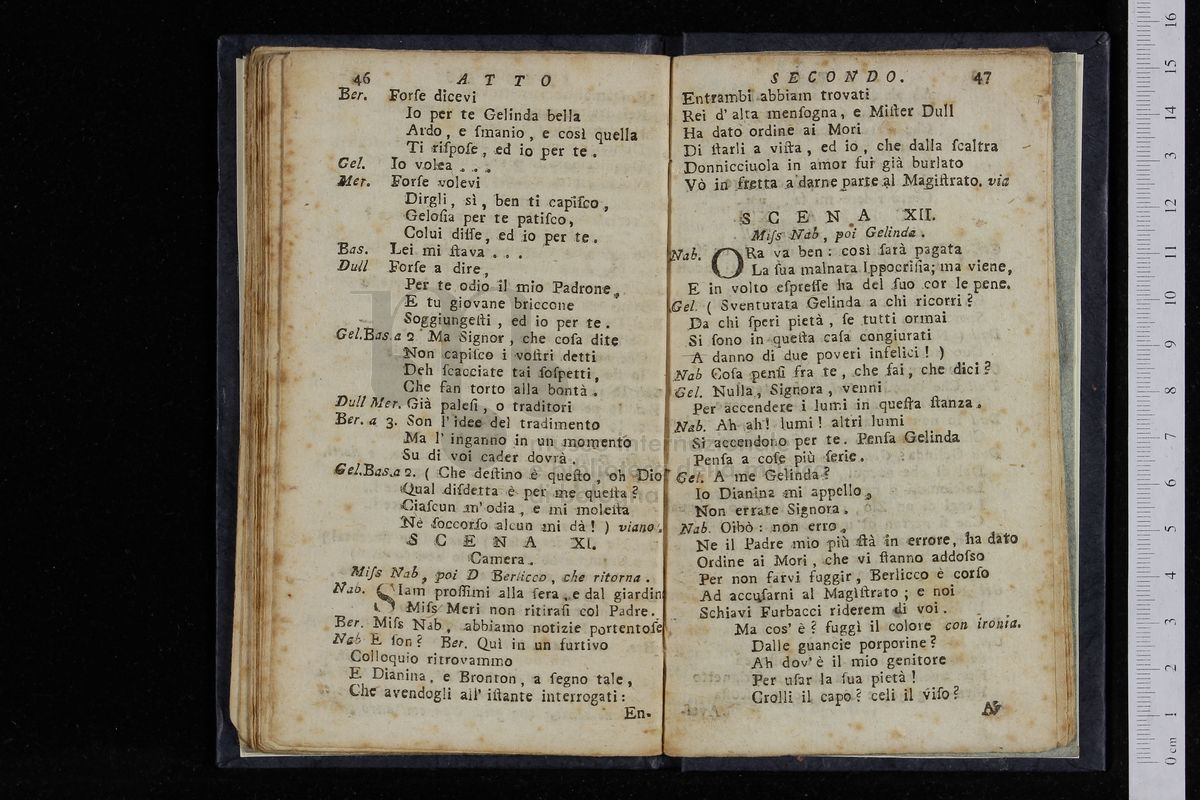 46 ATTO
Ber. Forſe dicevi
Io per te Gelinda bella
Ardo, e ſmanio, e così quella
Ti riſpoſe, ed io per te.
Gel. Io volea . . .
Mer. Forſe volevi
Dirgli, sì, ben ti capiſco,
Geloſia per te patiſco,
Colui diſſe, ed io per te.
Bas. Lei mi ſtava . . .
Dull Forſe a dire,
Per te odio il mio Padrone,
E tu giovane briccone
Soggiungeſti, ed io per te.
Gel.Bas.a 2 Ma Signor, che coſa dite
Non capiſco i voſtri detti
Deh ſcacciate tai ſoſpetti,
Che fan torto alla bontà.
Dull Mer. Già paleſi, o traditori
Ber. a 3. Son l'idee del tradimento
Ma l' inganno in un momento
Su di voi cader dovrà.
Gel.Bas.a 2. ( Che deſtino è queſto, oh Dio!
Qual diſdetta è per me queſta?
Ciaſcun m'odia, e mi moleſta
Nè ſoccorſo alcun mi dà! ) viano.
SCENA XI.
Camera.
Miſs Nab, poi D Berlicco, che ritorna.
Nab. SIam proſſimi alla ſera, e dal giardin
Miſs Meri non ritiraſi col Padre.
Ber. Miſs Nab, abbiamo notizie portentoſe
Nab E ſon? Ber. Quì in un furtivo
Colloquio ritrovammo
E Dianina, e Bronton, a ſegno tale,
Che avendogli all' iſtante interrogati:
En-
SECONDO. 47
Entrambi abbiam trovati
Rei d'alta menſogna, e Miſter Dull
Ha dato ordine ai Mori
Di ſtarli a viſta, ed io, che dalla ſcaltra
Donnicciuola in amor fui già burlato
Vò in fretta a darne parte al Magiſtrato. via
SCENA XII.
Miſs Nab, poi Gelinda.
Nab. ORa va ben: così ſarà pagata
La ſua malnata Ippocriſia; ma viene,
E in volto eſpreſſe ha del ſuo cor le pene.
Gel. ( Sventurata Gelinda a chi ricorri?
Da chi ſperi pietà, ſe tutti ormai
Si ſono in queſta caſa congiurati
A danno di due poveri infelici! )
Nab Coſa penſi fra te, che fai, che dici?
Gel. Nulla, Signora, venni
Per accendere i lumi in queſta ſtanza.
Nab. Ah ah! lumi! altri lumi
Si accendono per te. Penſa Gelinda
Penſa a coſe più ſerie.
Gel. A me Gelinda?
Io Dianina mi appello,
Non errate Signora.
Nab. Oibò: non erro,
Ne il Padre mio più ſtà in errore, ha dato
Ordine ai Mori, che vi ſtanno addoſso
Per non farvi fuggir, Berlicco è corſo
Ad accuſarni al Magiſtrato; e noi
Schiavi Furbacci riderem di voi.
Ma cos' è? fuggì il colore con ironia.
Dalle guancie porporine?
Ah dov'è il mio genitore
Per uſar la ſua pietà!
Crolli il capo? celi il viſo?